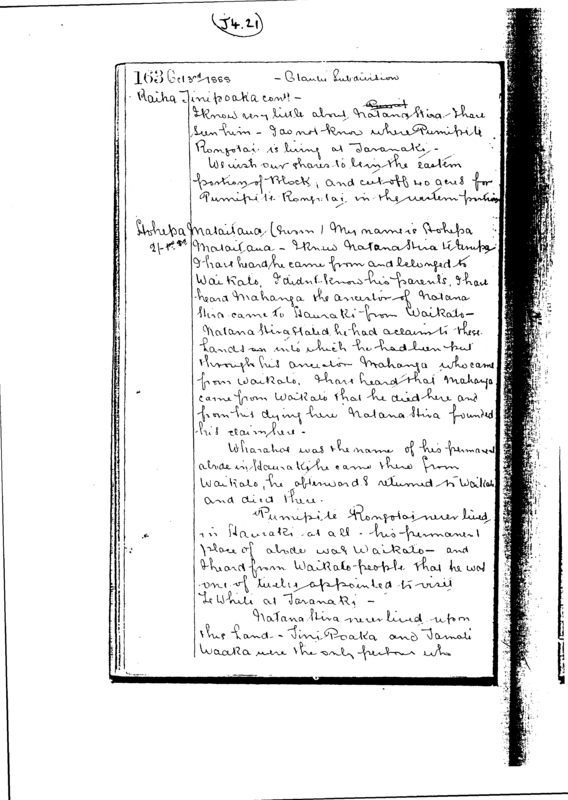 J4.21
163 Oct 3rd 1888 - Subdivision
Raiha Tinipoaka contd -
I know very little about Natana Hira I have
seen him - I do not know where Pumipite
Rongotai is living at Taranaki -
We wish our shares to be in the eastern
portion of Block, and cut off 40 acres for
Pumipite Rongotai in the western portion
Hohepa Mataitaua (sworn) My name is Hohepa
Mataitaua - I knew Natana Hira
I have heard he came from and belonged to
Waikato, I didn't know his parents, I have
heard Mahanga the ancestor of Natana
Hira came to Hauraki from Waikato -
Natana Hira stated he had a claim to these
lands into which he had been put
through his ancestor Mahanga who came
from Waikato. I have heard that Mahanga
came from Waikato that he died here and
from his dying here Natana Hira founded
his claim here -
was the name of his permanent
abode in Hauraki, he came there from
Waikato, he afterwards returned to Waikato
and died there.
Pumipite Rongotai never lived
in Hauraki at all - his permanent
place of abode was Waikato - and
I heard from Waikato people that he was
one of twelve appointed to visit
Te Whiti at Taranaki -
Natana Hira never lived upon
this land - Tini Poaka and Tamati
Waaka were the only persons who